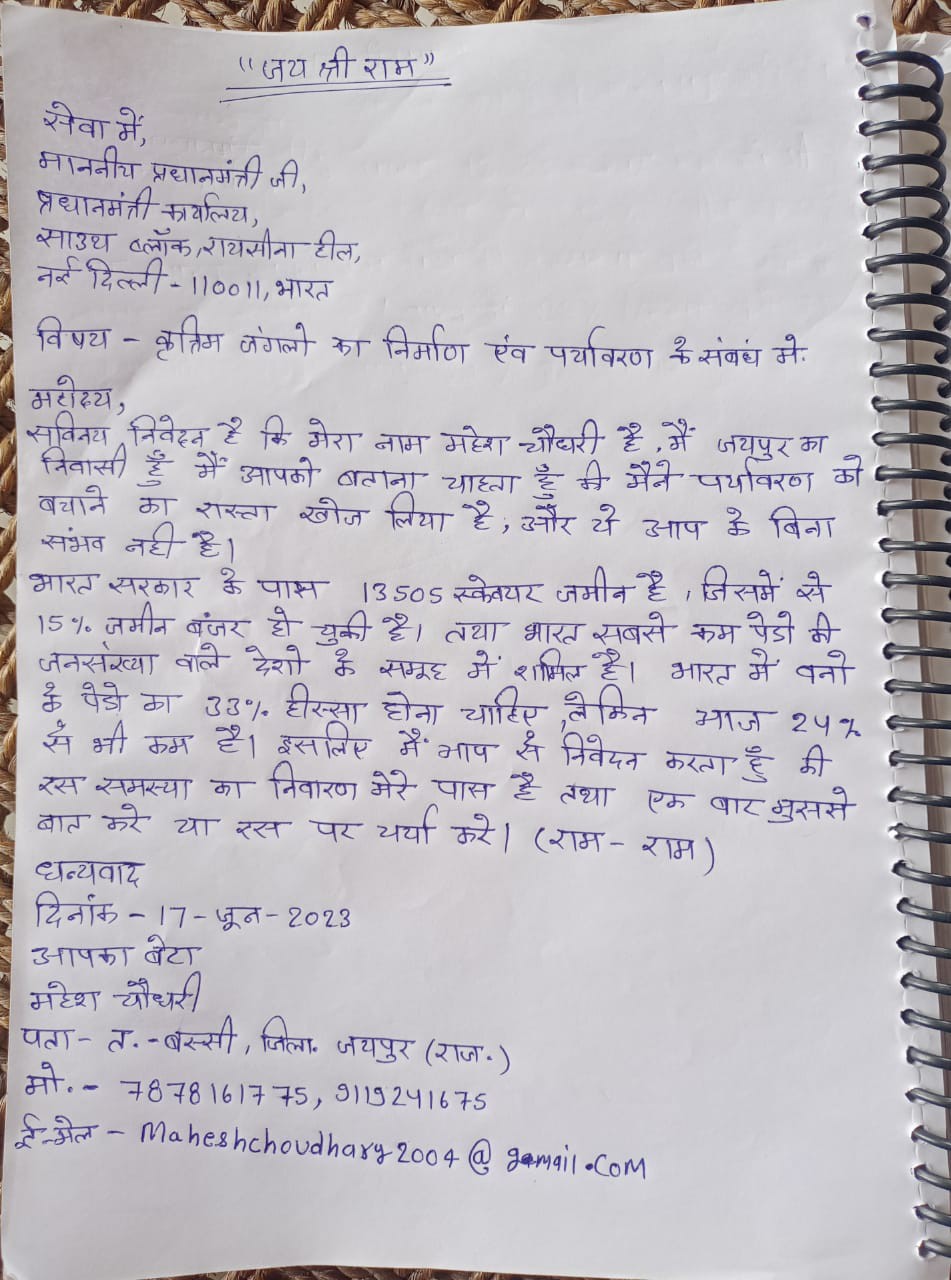 “जय श्री राम”
सेवा में,
माननीय प्रधानमंत्री जी,
प्रधानमंत्री कार्यालय,
साउथ ब्लॉक, रायसीना हील,
नई दिल्ली - 110011, भारत
विषय - कृत्रिम जंगलो का निर्माण एंव पर्यावरण के संबंध मे.
महोदय,
सविनय निवेदन है कि मेरा नाम महेश चौधरी है. मैं जयपुर का
निवासी हूँ मैं आपको बताना चाहता हूँ की मैने पर्यावरण को
बचाने का रास्ता खोज लिया है, और ये आप के बिना
संभव नही है।
भारत सरकार के पास 13505 स्केवयर जमीन है, जिसमें से
15% जमीन बंजर हो चुकी है। तथा भारत सबसे कम पेडो की
जनसंख्या वाले देशो के समूह में शामिल है। भारत में वनो
के पेडो का 33% हीस्सा होना चाहिए, लेकिन आज 24%
सें भी कम है। इसलिए मैं आप सें निवेदन करता हूँ की
इस समस्या का निवारण मेरे पास है तथा एक बार मुससे
बात करे या इस पर चर्चा करे। (राम - राम)
धन्यवाद
दिनांक - 17 - जून - 2023
आपका बेटा
महेश चौधरी
पता - त. - बस्सी, जिला. जयपुर (राज.)
मो. - 7878161775, 9119241675
ई-मेल - Maheshchoudhary2004@gmail.com